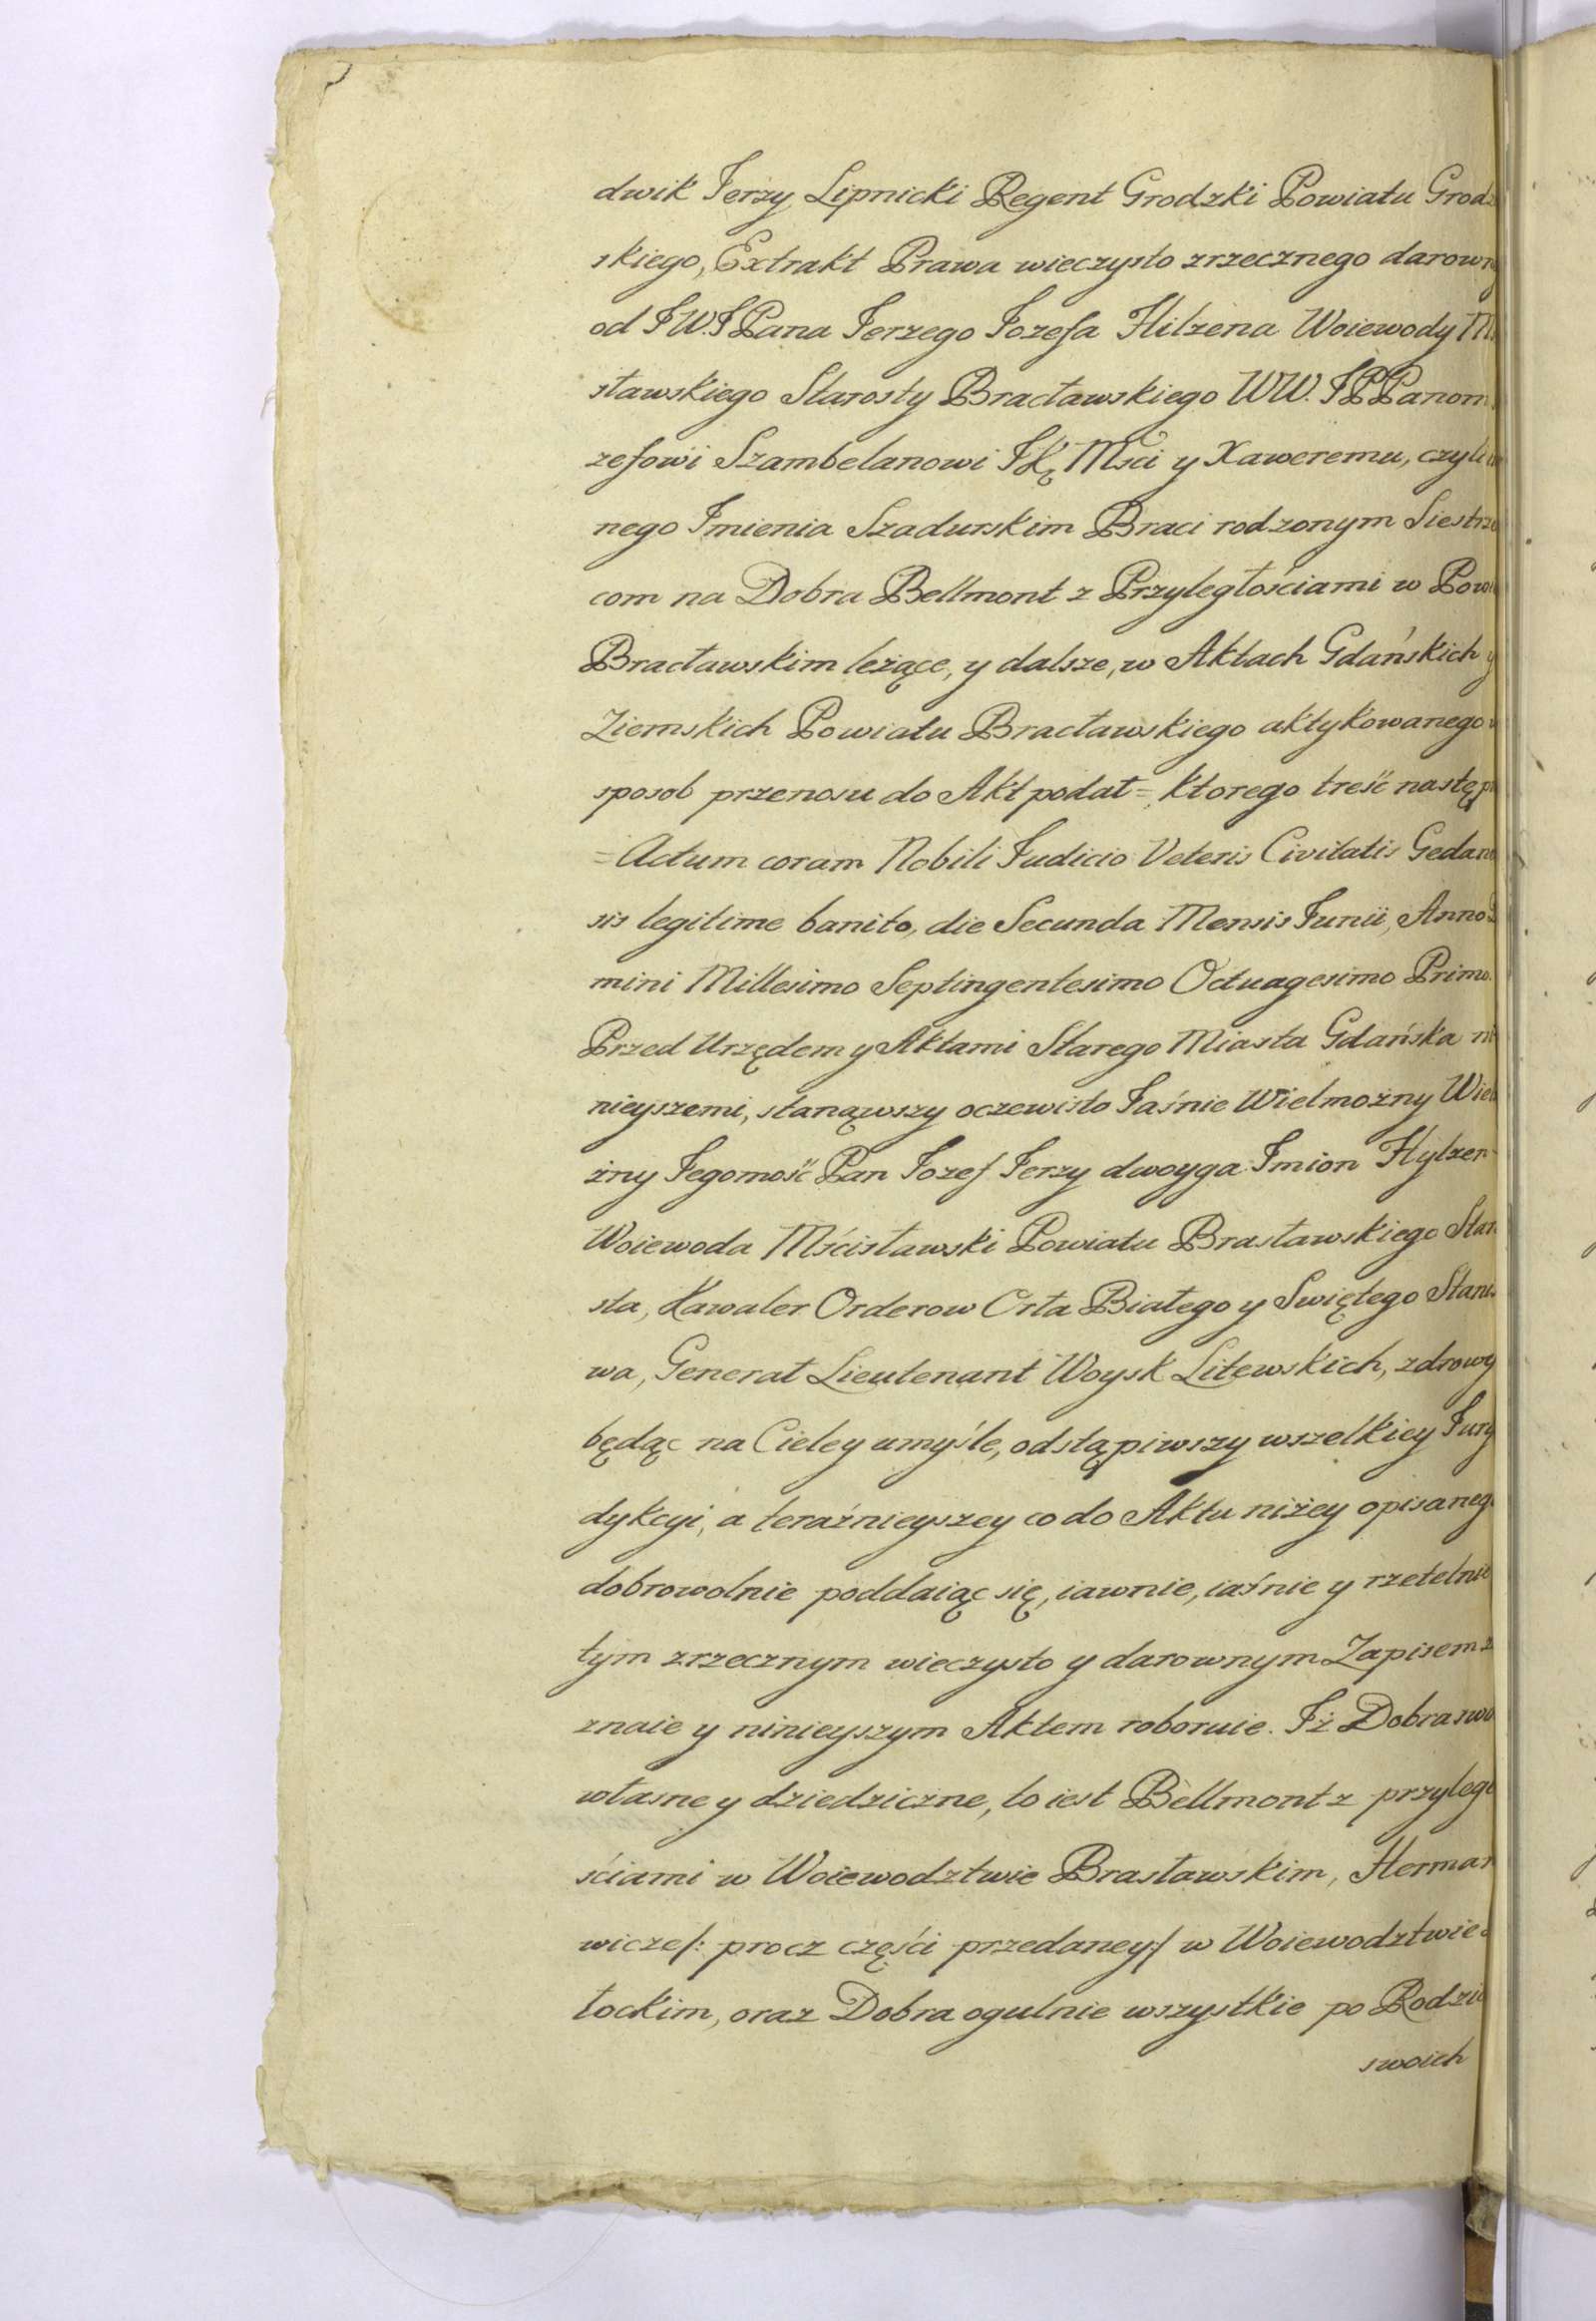 dwik Jerzy Lipnicki Regent Grodzki Powiatu Grodz
skiego, Extrakt Prawa wieczysto zrzecznego darown
od JW.JPana Jerzego Jozefa Hilzena Woiewody M
sławskiego Starosty Bracławskiego WW. JPPanom
zefowi Szambelanowi JKę Mści y Xaweremu, czyli
nego Jmienia Szadurskim Braci rodzonym Siestrze
com na Dobra Bellmont z Przyległościami w Powi
Bracławskim leżące, y dalsze, w Aktach Gdańskich y
Ziemskich Powiatu Bracławskiego aktykowanego
sposob przenosu do Akt podał = ktorego treść następ
= Actum coram Nobili Judicio Veteris Civitatis Gedan
sis legitime banito, die Secunda Mensis Junii, Anno
mini Millesimo Septingentesimo Octuagesimo Primo.
Przed Urzędem y Aktami Starego Miasta Gdańska ni
nieyszemi, stanąwszy oczewisto Jaśnie Wielmożny Wiel
żny Jegomość Pan Jozef Jerzy dwoyga Jmion Hylzen
Woiewoda Mścisławski Powiatu Brasławskiego Star
sta, Kawaler Orderow Orła Białego y Swiętego Stanis
wa, Generał Lieutenant Woysk Litewskich, zdrowy
będąc na Ciele y umyśle, odstąpiwszy wszelkiey Jury
dykcyi, a teraźnieyszey co do Aktu niżey opisaneg
dobrowolnie poddaiąc się, iawnie, iaśnie y rzetelnie
tym zrzecznym wieczysto y darownym Zapisem z
znaie y ninieyszym Aktem roboruie. Jż Dobra swo
własne y dziedziczne, to iest Bellmont z przyleg
ściami w Woiewodztwie Brasławskim, Herman
wicze/: procz części przedaney:/ w Woiewodztwie
łockim, oraz Dobra ogulnie wszystkie po Rodzi
swoich